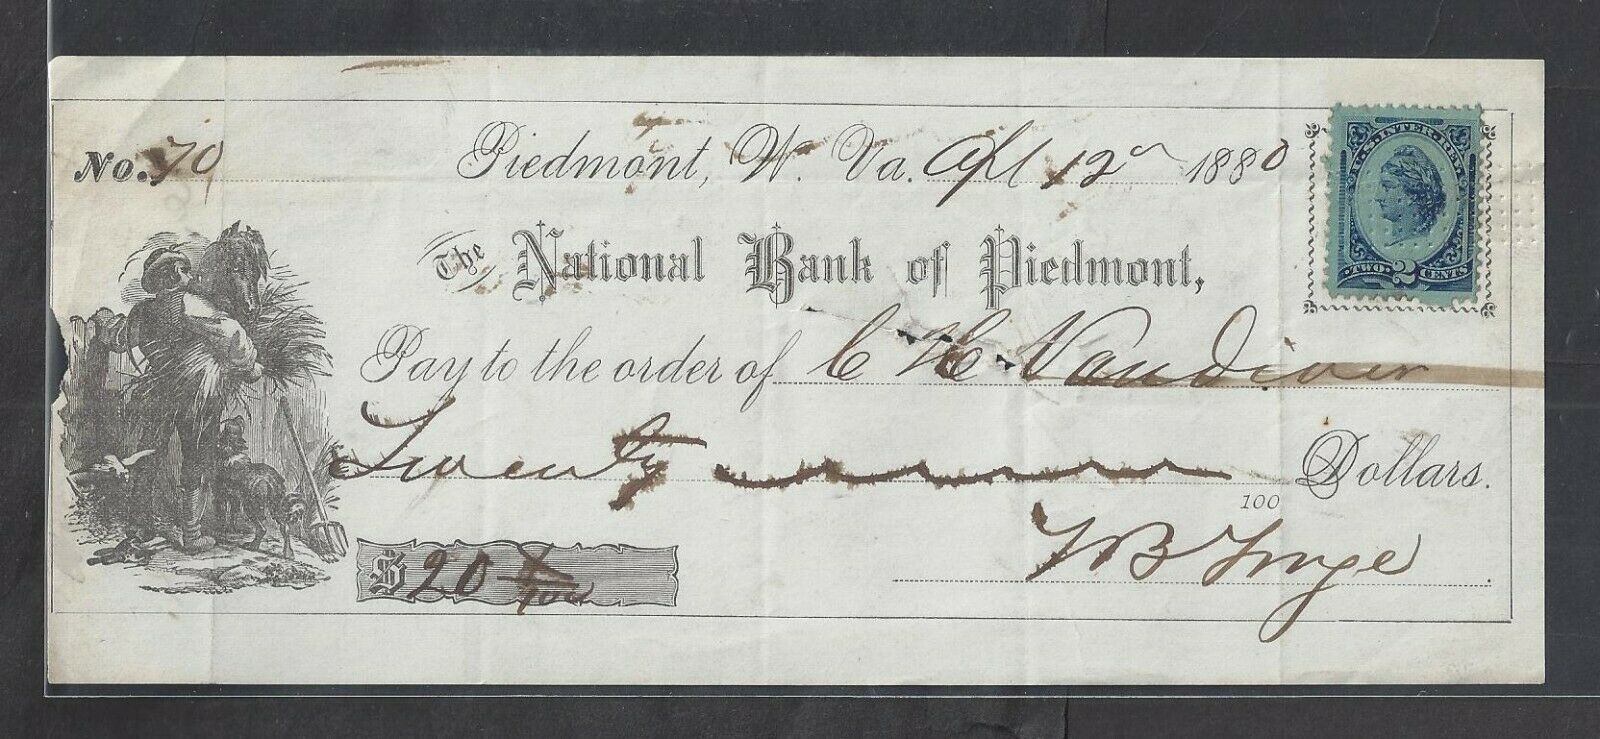 No. 70
Piedmont, W. Va. Apl 12 1880
U.S. INTER. REV.
TWO 2 CENTS
The National Bank of Piedmont,
Pay to the order of C H Vandiver
Twenty
100 Dollars.
$ 20 x/100